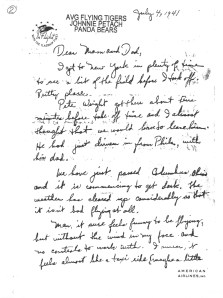 ②
AVG FLYING TIGERS
JOHNNIE PETACH
PANDA BEARS
July 4, 1941
Dear Mom and Dad,
I got to New York in plenty of time
to see a bit of the field before I took off.
Pretty place.
Pete Wright got here about five
minutes before take off time and I almost
thought that we would have to leave him.
He had just driven in from Phila, with
his dad.
We have just passed Columbus Ohio
and it is commencing to get dark. The
weather has cleared up considerably so that
it isn't bad flying at all.
Man, it sure feels funny to be flying,
but without the wind in my face and
no controls to work with. I mean, it
feels almost like a taxi ride (maybe a little
AMERICAN
AIRLINES, INC.